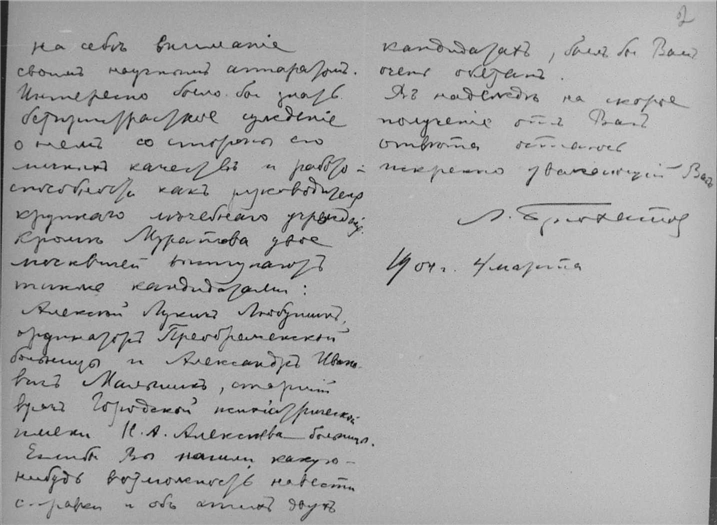 2
на себя вниманіе
своимъ научнымъ аппаратомъ.
Интересно было бы знать
безпристрастное сужденіе
о немъ со стороны его
личныхъ качествъ и работо-
способности какъ руководителя
крупнаго лѣчебнаго учрежденія.
Кромѣ Муратова двое
москвичей выступаютъ
такими кандидатами:
Алексѣй Лукичъ Любушинъ,
ординаторъ Преображенской
больницы и Александръ Ивано-
вичъ Мальшинъ, старшій
врачъ Городской психіатрической
имени Н. А. Алексѣева больницы.
Еслибы Вы нашли какую-
нибудь возможность навести
справки и объ этихъ двухъ
кандидатахъ, былъ бы Вамъ
очень обязанъ.
Въ надеждѣ на скорое
полученіе отъ Васъ
отвѣта остаюсь
искренно уважающій Васъ
1904 г. 4 марта